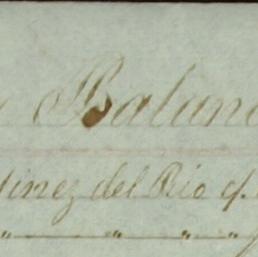 Balan
tinez del Rio c/.
" " " "